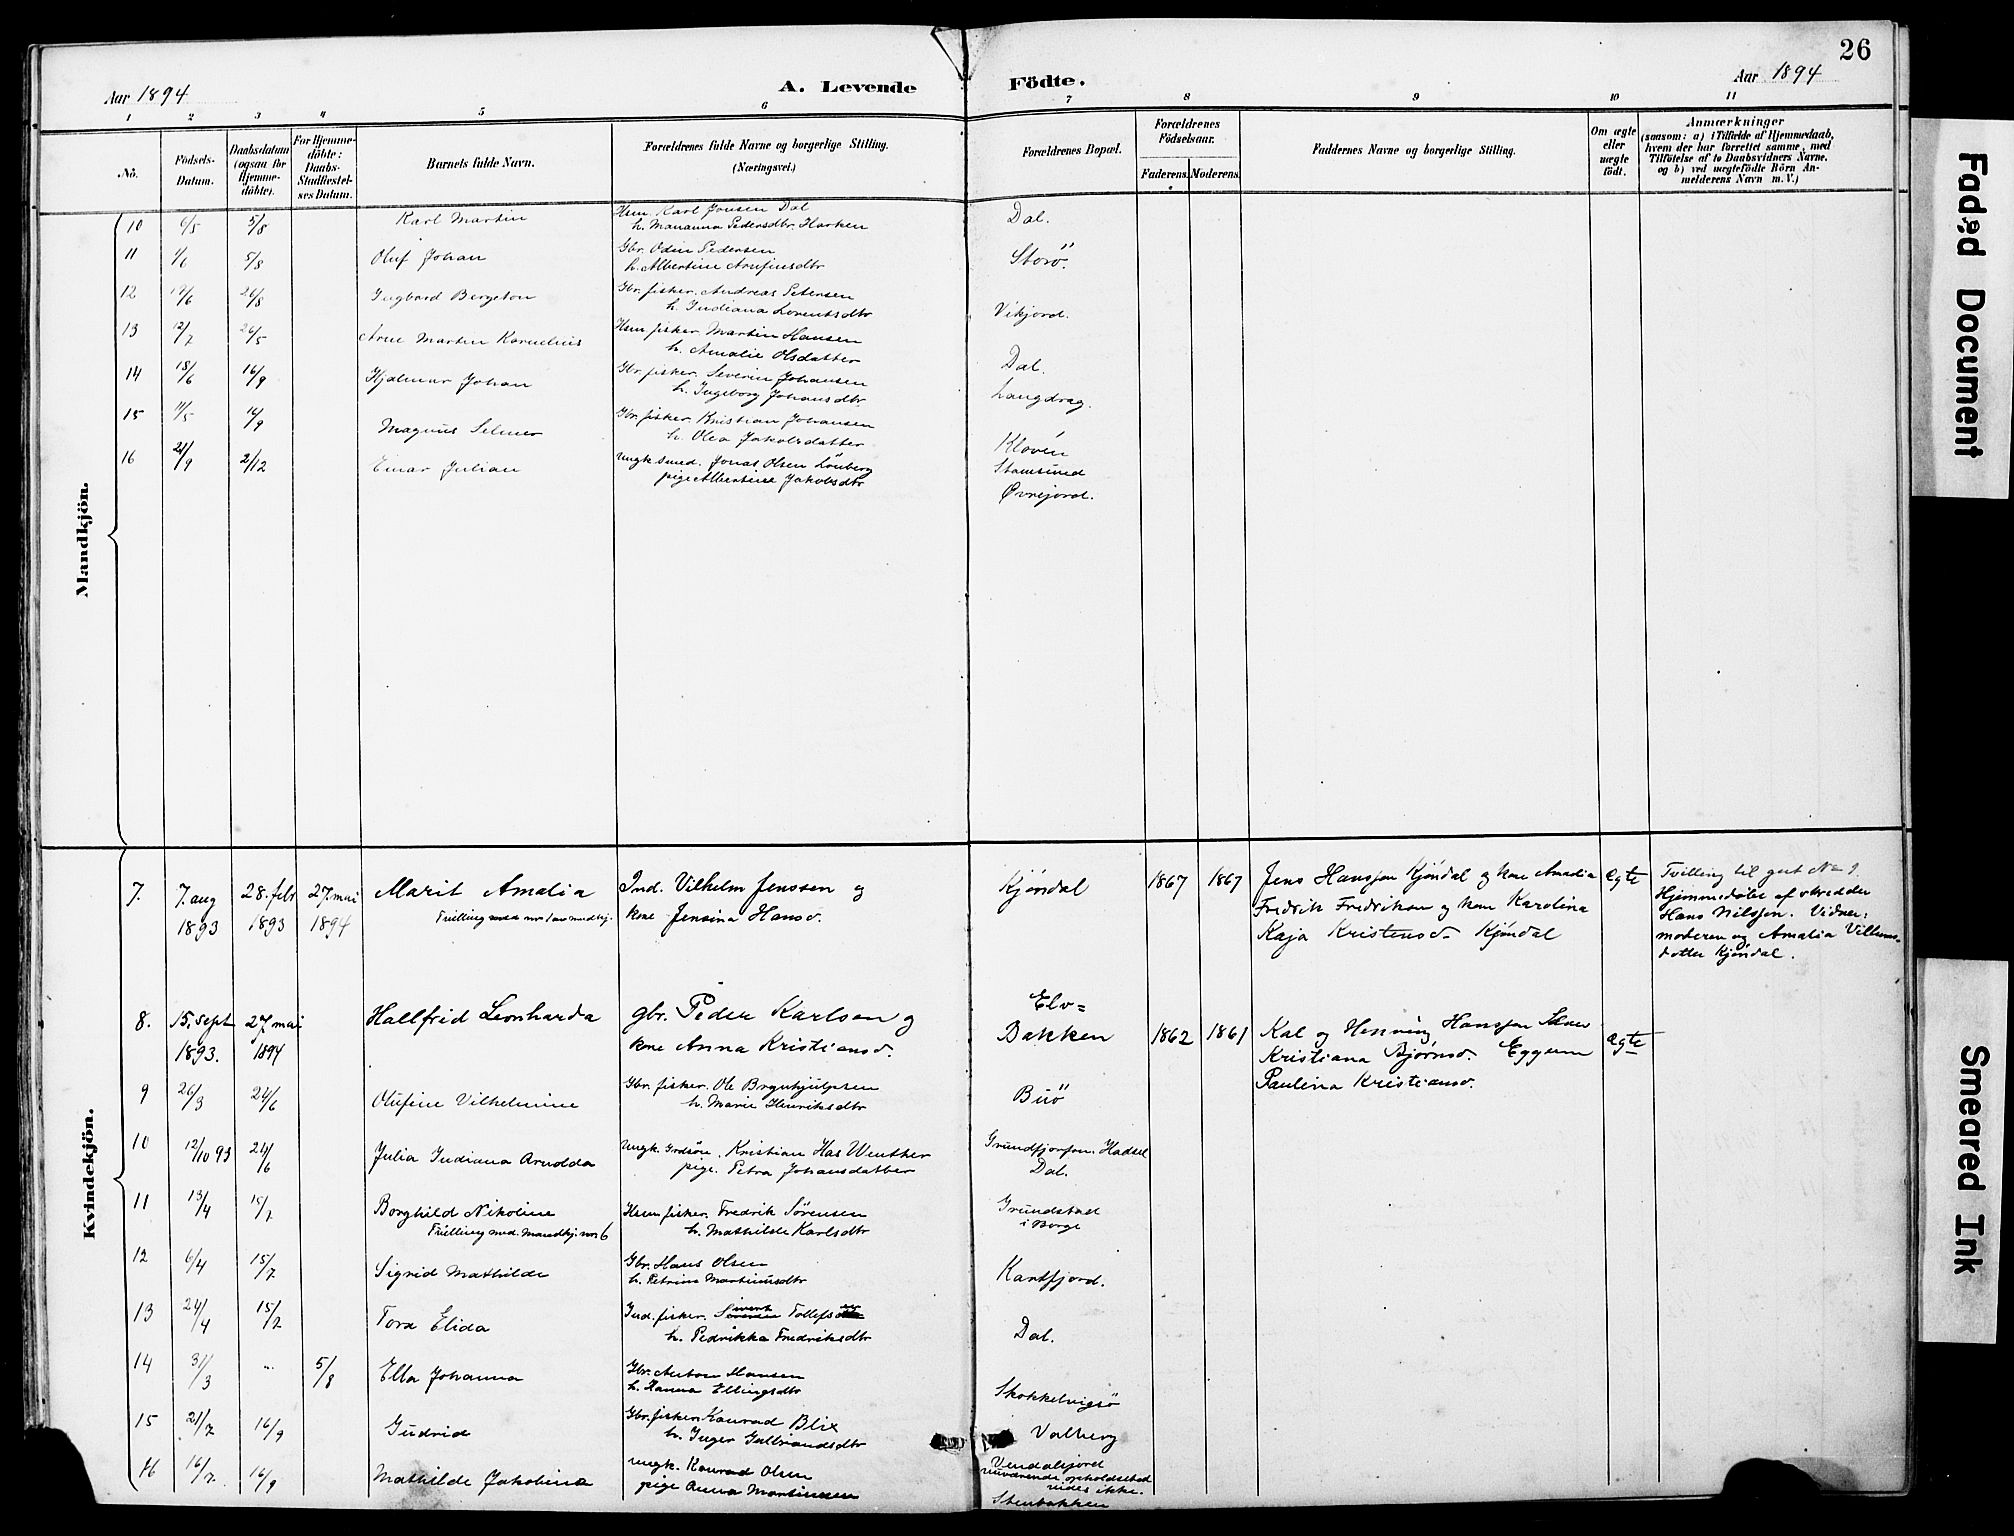 26
Aar 1894
A. Levende Födte.
Aar 1894
1 2 3 4 5 6 7 8 9 10 11
Nö.
Födsels-Datum.
Daabsdatum (ogsaa for Hjemme-döbte).
For Hjemme-döbte: Daabs-Stadfæstel-ses Datum.
Barnets fulde Navn.
Forældrenes fulde Navne og borgerlige Stilling. (Næringsvei.)
Forældrenes Bopæl.
Forældrenes Födselsaar.
Faderens. Moderens.
Faddernes Navne og borgerlige Stilling.
Om ægte eller uægte födt.
Anmærkninger
(saasom: a) i Tilfælde af Hjemmedaab, hvem der har forrettet samme, med Tilföielse af to Daabsvidners Navne, og b) ved uægtefödte Börn An-melderens Navn m. V.)
Mandkjön.
10 6/5 5/8 Karl Martin Hsm. Karl Jensen Dal Dal.
h. Marianna Pedersdtr. Harken
11 1/6 5/8 Oluf Johan Gbr. Odin Pedersen Storö.
h. Albertine Arufinsdtr
12 19/6 26/8 Ingbard Bergeton Gbr. fisker. Andreas Petersen Vikjord.
h. Indiana Lorentsdtr
13 12/7 26/5 Arne Martin Kornelius Hsm fisker Martin Hansen Dal.
h. Amalie Olsdatter
14 18/6 16/9 Hjalmar Johan Gbr. fisker. Severin Johansen Langdrag.
h. Ingeborg Johansdtr.
15 11/5 16/9 Magnus Selmer Gbr. fisker. Kristian Johansen Kloven
h. Olea Jakobsdatter
16 21/9 2/12 Einar Julian Ungk. smed. Jonas Olsen Lönberg Stamsund
pige Albertine Jakobsdtr Øvrejord.
Kvindekjön.
7. 7. aug 28. febr 27. mai Marit Amalia Ind. Vilhelm Jenssen og Kjöndal 1867 1867 Jens Hanssen Kjöndal og kone Amalia ægte Tvilling til gut No 9.
1893 1893 1894 Tvilling med nr 1 av mandkj. kone Jensina Hansd. Fredrik Fredriksen og kone Karolina Hjemmedøbt af
Kaja Kristensd. Kjöndal Hans Nilssen. Vidner:
moderen og Amalia Vilhelms-
datter Kjöndal.
8. 15. sept 27. mai Hallfrid Leonharda gbr. Peder Karlsen og Elv=
1893. 1894 kone Anna Kristiansd. Bakken 1862 1861 Kal og Henning Hanssen ægte
Kristiana Bjørnsd. Eggum
Paulina Kristiansd.
9 26/3 24/6 Olufine Vilhelmine Gbr. fisker. Ole Brynhjulfsen Buö
h. Marie Henriksdtr
10 12/10 93 24/6 Julia Indiana Arnolda Ungk. Grdsön. Kristian Has Wenther Grundfjorfen. Hadsel
pige. Petra Johansdatter Dal.
11 13/4 15/7 Borghild Nikoline Hsm fisker. Fredrik Sörensen Grundstad
Tvilling med. Mandkj. nr. 6 h. Mathilde Karlsdtr i Borge
12 6/4 15/7 Sigrid Mathilde Gbr. Hans Olsen Kartfjord.
h. Petrine Martinusdtr
13 24/4 15/7 Tora Elida Ind. fisker. Sivert Tollefsen Dal.
h. Pedrikka Fredriksdtr
14 31/3 5/8 Ella Johanna Gbr. Anton Hansen Skokkelvigsö
h. Hanna Ellingsdtr
15 21/7 16/9 Gudrid Gbr. fisker. Konrad Blix Valberg
h. Inger Gulbrandsdtr
16 16/7 16/9 Mathilde Jakobine Ungk. Konrad Olsen Vendalsjord
pige Anna Martinsen nuværende opholdssted
vides ikke.
Stenbakken
Faded Document
Smeared Ink